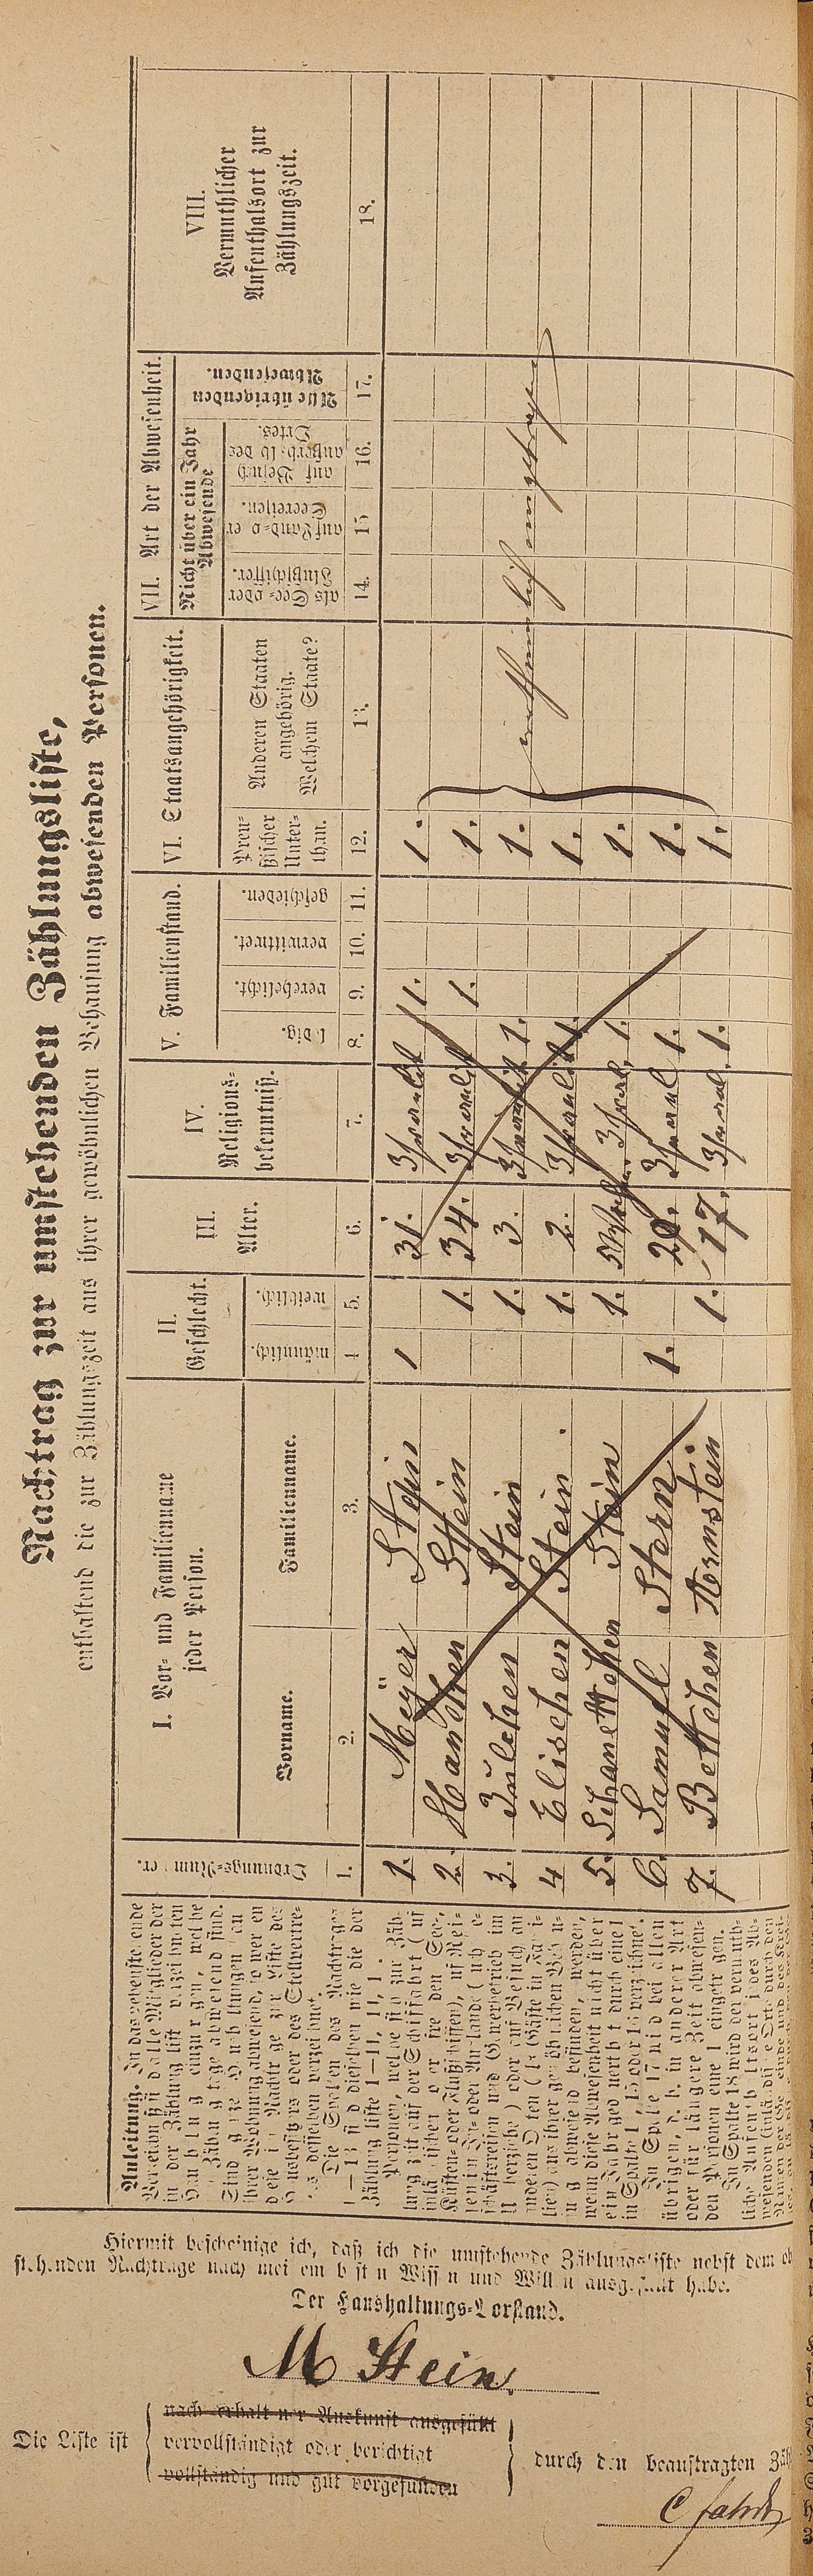 Nachtrag zur umstehenden Zählungsliste,
enthaltend die zur Zählungszeit aus ihrer gewöhnlichen Behausung abwesenden Personen.
Ordnungs-Nummer.
I. Vor- und Familienname
jeder Person.
Vorname.
Familienname.
II.
Geschlecht.
männlich.
weiblich.
III.
Alter.
IV.
Religions-
bekenntniß.
V. Familienstand.
ledig.
verehelicht.
verwittwet.
geschieden.
VI. Staatsangehörigkeit.
Preu-
ßischer
Unter-
than.
Anderen Staaten
angehörig.
Welchem Staate?
VII. Art der Abwesenheit.
Nicht über ein Jahr
Abwesende
als See- oder
Flußschiffer.
auf Land- oder
Seereisen.
auf Besuch
außerhalb des
Ortes.
Alle übrigen
Abwesenden.
VIII.
Vermuthlicher
Aufenthalsort zur
Zählungszeit.
1. 2. 3. 4 5. 6. 7. 8. 9. 10. 11. 12. 13. 14. 15 16. 17. 18.
1. Meÿer Stein 1 31. Israelit 1. 1.
2. Hanchen Stein 1. 34. Israelit 1. 1.
3. Julchen Stein 1. 3. Israelit 1. 1.
4 Elischen Stein. 1. 2. Israelit 1. 1.
5. Schanettchen Stein 1. Israel. 1. 1.
6. Samuel Stern 1. Israel 1. 1.
7. Bettchen Hornstein 1. 17. Israel. 1. 1.
Anleitung. In das nebenstehende
Verzeichniß sind alle Mitglieder der
in der Zählungsliste verzeichneten
Haushaltung einzutragen, welche
am Zählungstage abwesend sind.
Sind ganze Haushaltungen von
ihrer Wohnung abwesend, so werden
diese im Nachtrage zur Liste des
Hausbesitzers oder des Stellvertre-
ters desselben verzeichnet.
Die Spalten des Nachtrages
1—13 sind dieselben wie die der
Personen, welche sich zur Zäh-
lungszeit auf der Schiffahrt (auf
inländischen oder fremden See-,
Küsten- oder Flußschiffen), auf Rei-
sen im In- oder Auslande (auch Ge-
schäftsreisen und Gewerbetrieb im
Umherziehen) oder auf Besuch an
anderen Orten (als Gäste in Fami-
lien) aus ihrer gewöhnlichen Behau-
sung abwesend befinden, werden,
wenn diese Abwesenheit nicht über
ein Jahr gedauert hat durch eine 1
in Spalte 14, 15 oder 16 verzeichnet.
In Spalte 17 sind bei allen
übrigen, d. h. in anderer Art
oder für längere Zeit abwesen-
den Personen eine 1 einzutragen.
In Spalte 18 wird der vermuth-
liche Aufenthaltsort des Ab-
wesenden (inländische Orte durch den
Hiermit bescheinige ich, daß ich die umstehende Zählungsliste nebst dem
stehenden Nachtrage nach meinem besten Wissen und Willen ausgefüllt habe.
Der Haushaltungs-Vorstand.
M Stein.
Die Liste ist
nach erhaltener Auskunft ausgefüllt
vervollständigt oder berichtigt
vollständig und gut vorgefunden
durch den beauftragten